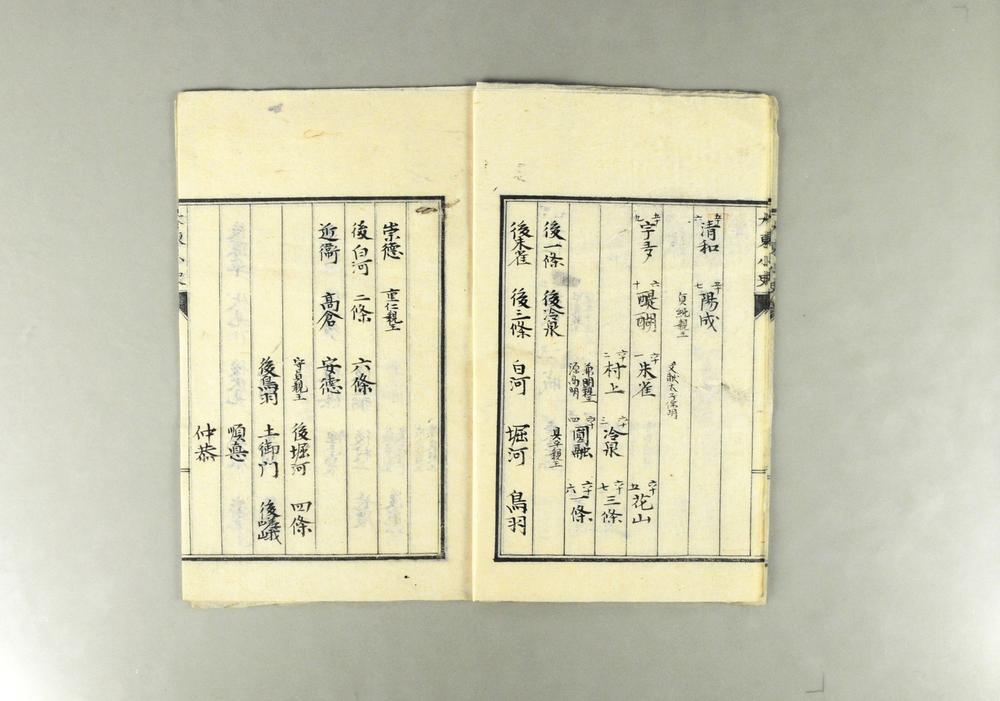 清和 陽成
貞純親王
文獻太子保明
宇多 醍醐 朱雀 花山
村上 冷泉 三條
兼明親王
源高明
圓融 一條
具平親王
後一條 後冷泉
後朱雀 後三條 白河 堀河 鳥羽
崇德 重仁親王
後白河 二條 六條
近衞 高倉 安德
守貞親王 後堀河 四條
後鳥羽 土御門 後嵯峨
順德
仲恭